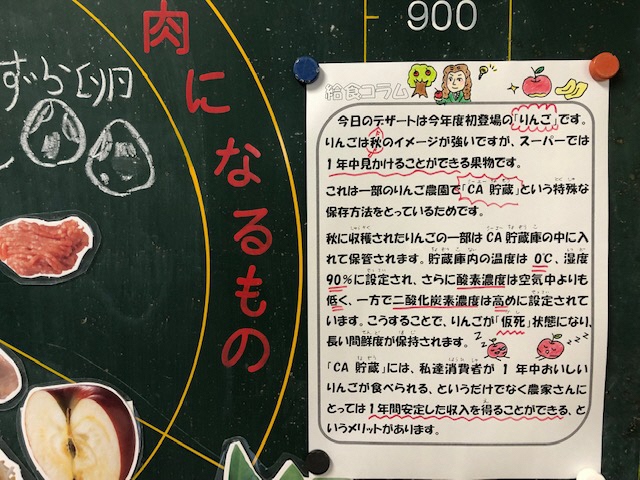 900
肉になるもの
ずら卵
給食コラム
今日のデザートは今年度初登場の「りんご」です。
りんごは秋のイメージが強いですが、スーパーでは
1年中見かけることができる果物です。
これは一部のりんご農園で「CA 貯蔵」という特殊な
保存方法をとっているためです。
秋に収穫されたりんごの一部は CA 貯蔵庫の中に入
れて保管されます。貯蔵庫内の温度は 0℃、湿度
90%に設定され、さらに酸素濃度は空気中よりも
低く、一方で二酸化炭素濃度は高めに設定されて
います。こうすることで、りんごが「仮死」状態になり、
長い間鮮度が保持されます。
zzz
zzz
「CA 貯蔵」には、私達消費者が 1 年中おいしい
りんごが食べられる、というだけでなく農家さんに
とっては1年間安定した収入を得ることができる、と
いうメリットがあります。